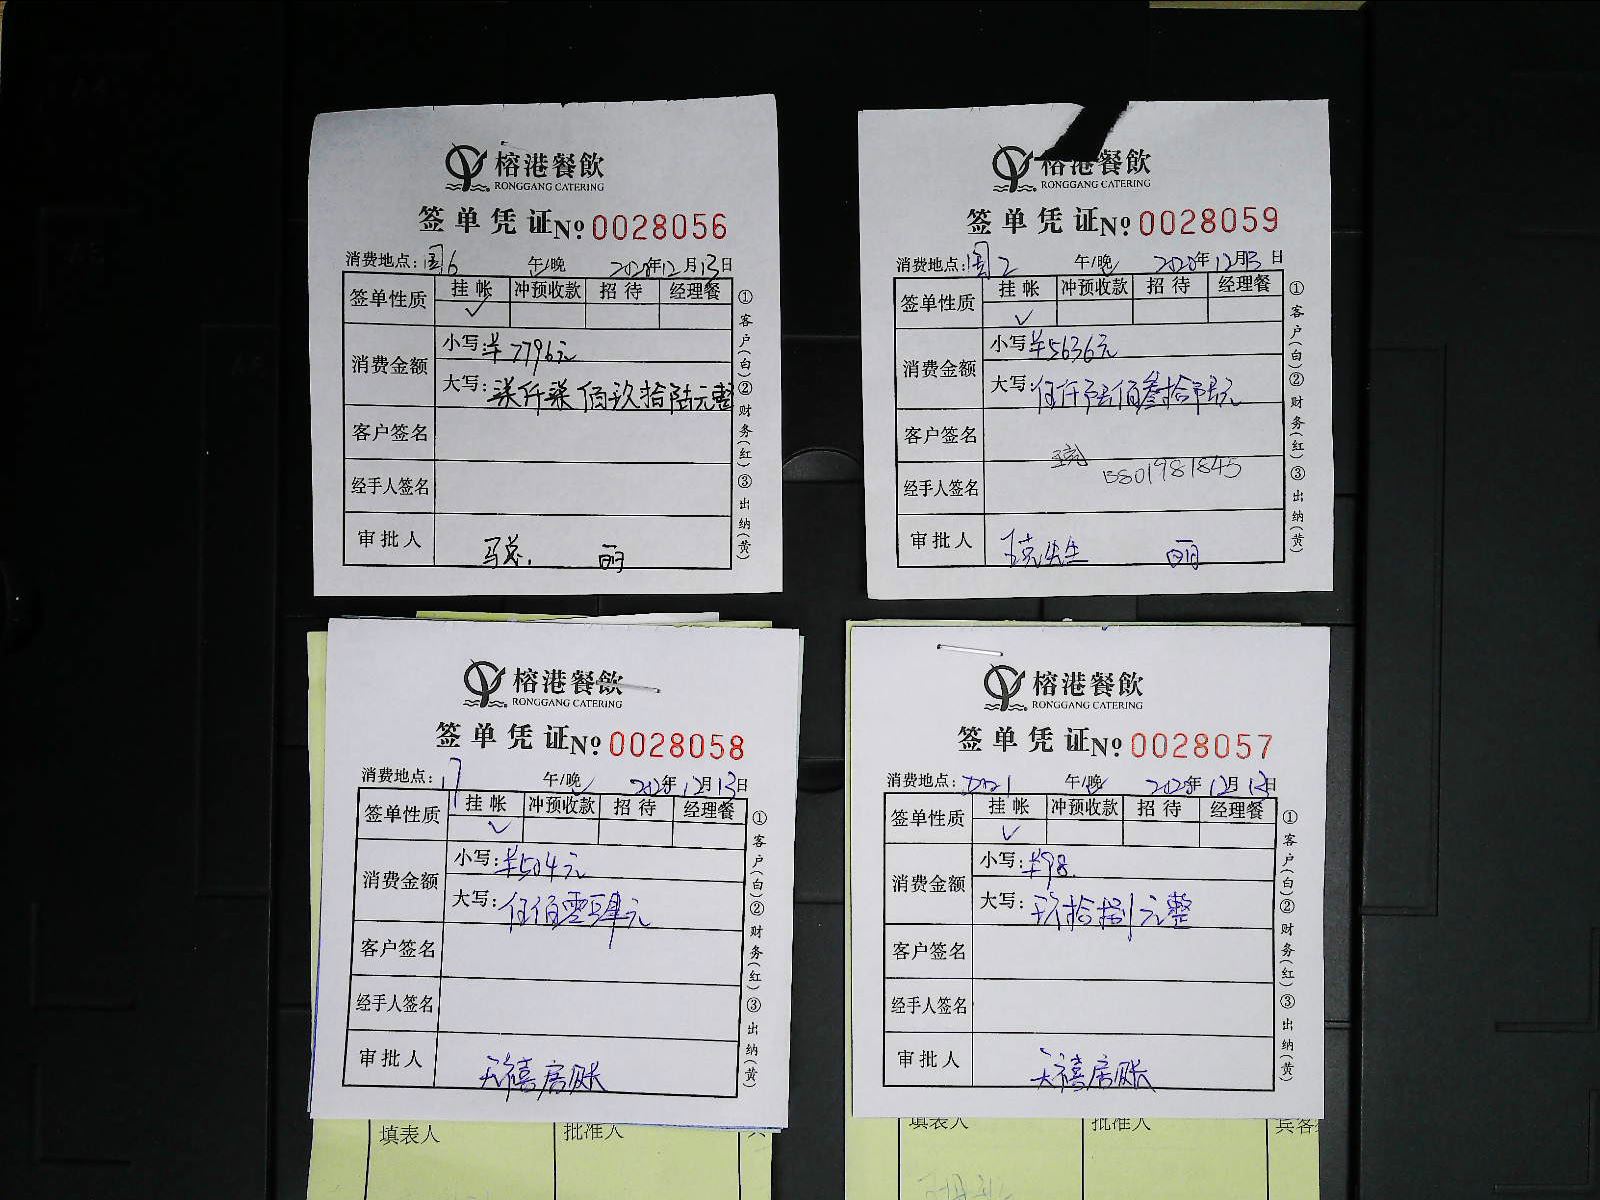 榕港餐飲
RONGGANG CATERING
签单凭证 No 0028056
消费地点：周6 午/晚 2020年12月13日
签单性质 挂帐 冲预收款 招待 经理餐
✓
消费金额
小写：￥7796元
大写：柒仟柒佰玖拾陆元整
客户签名
经手人签名
审批人 马总. 丽
①客户(白)②财务(红)③出纳(黄)
榕港餐飲
RONGGANG CATERING
签单凭证 No 0028059
消费地点：周2 午/晚 2020年12月13日
签单性质 挂帐 冲预收款 招待 经理餐
✓
消费金额
小写￥5636元
大写：伍仟陆佰叁拾陆元
客户签名
13801981845
经手人签名
审批人 先生 丽
①客户(白)②财务(红)③出纳(黄)
榕港餐飲
RONGGANG CATERING
签单凭证 No 0028058
消费地点： 午/晚 2020年12月13日
签单性质 挂帐 冲预收款 招待 经理餐
✓
消费金额
小写：￥504元
大写：伍佰零肆元
客户签名
经手人签名
审批人 天禧房账
①客户(白)②财务(红)③出纳(黄)
填表人 批准人
榕港餐飲
RONGGANG CATERING
签单凭证 No 0028057
消费地点： 午/晚 2020年12月13日
签单性质 挂帐 冲预收款 招待 经理餐
✓
消费金额
小写：￥98.
大写：玖拾捌元整
客户签名
经手人签名
审批人 天禧房账
①客户(白)②财务(红)③出纳(黄)
填表人 批准人 宾客